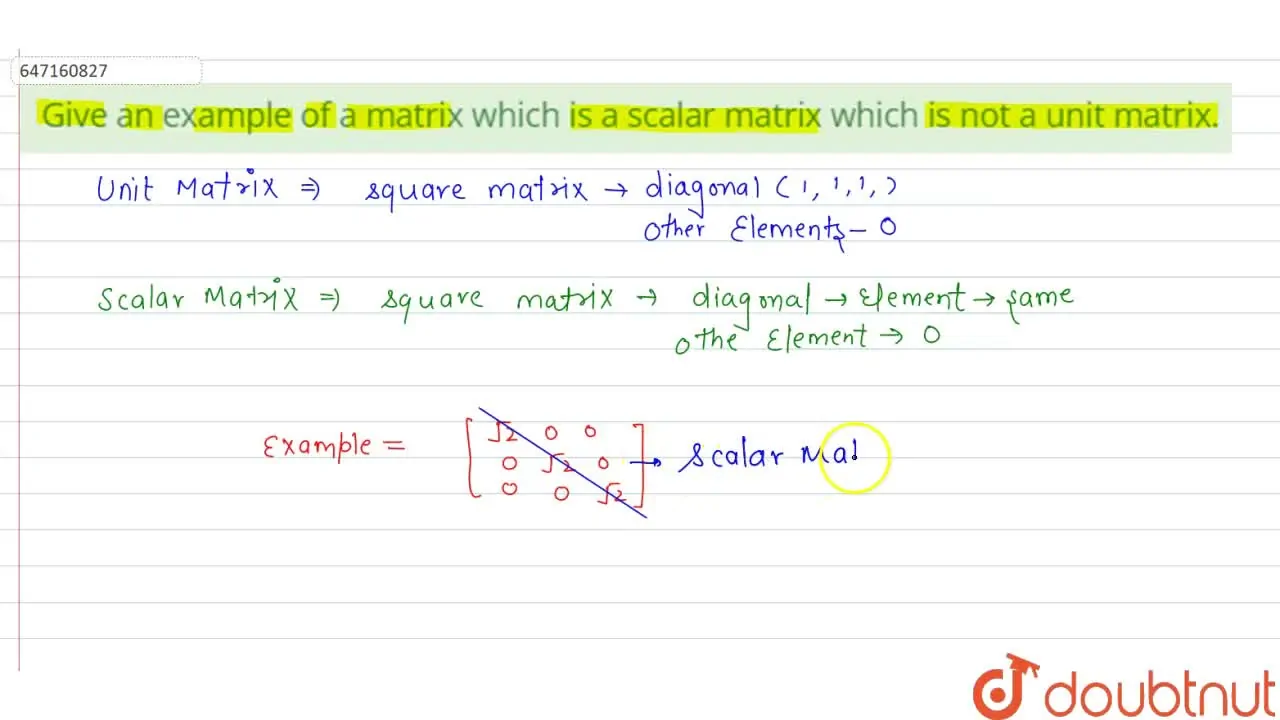 647160827
Give an example of a matrix which is a scalar matrix which is not a unit matrix.
Unit Matrix ⇒ square matrix → diagonal (1, 1, 1, )
Other Elements - 0
Scalar Matrix ⇒ square matrix → diagonal → Element → same
Othe Element → 0
Example = [ √2 0 0
0 √2 0 ] → Scalar Mat
0 0 √2
doubtnut